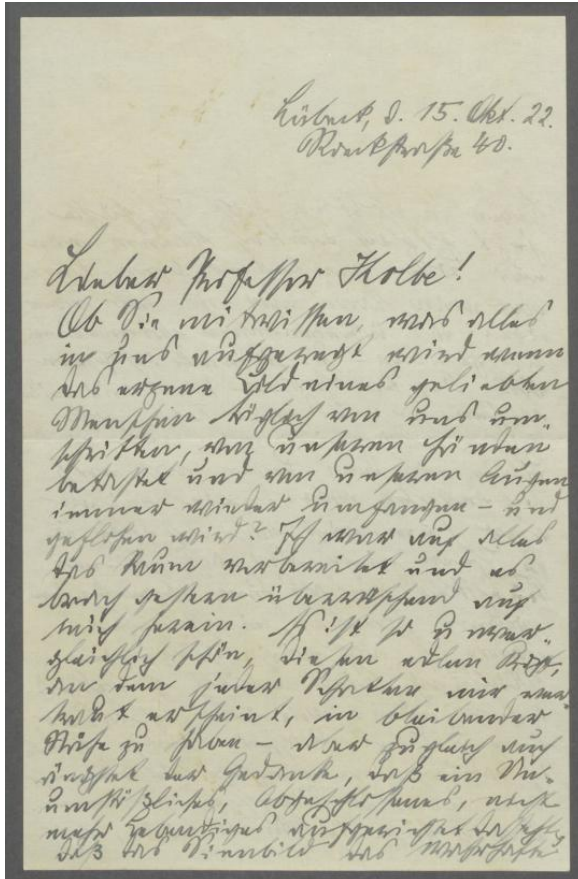 Lübeck, d. 15. Okt. 22.
Roeckstraße 40.
Lieber Professor Kolbe!
Ob Sie mitwissen, was alles
in uns aufgeregt wird wenn
das erzene Bild eines geliebten
Menschen täglich von uns um-
schritten, von unseren Händen
betastet und von unseren Augen
immer wieder umfangen – und
geflohen wird? Ich war auf alles
das kaum vorbereitet und es
brach gestern überraschend auf
mich herein. Es ist so unver-
gleichlich schön, diesen edlen Kopf,
an dem jeder Schatten mir ver-
traut erscheint, in bleibender
Nähe zu haben – aber zugleich auch
ängstet der Gedanke, daß ein Un-
umstößliches, Abgeschlossenes, nicht
mehr Lebendiges aufgerichtet dasteht,
daß das Sinnbild das wahrhafte